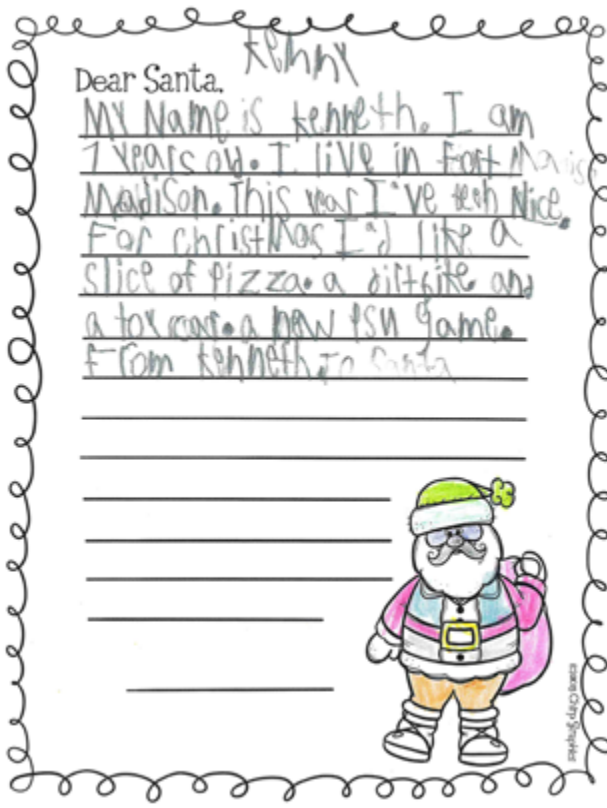 Kenny
Dear Santa,
My Name is Kenneth. I am
7 years old. I live in Fort
Madison. This year I've been Nice.
For christmas I'd like a
slice of Pizza. a dirtbike and
a toy car. a new game.
From Kenneth To Santa